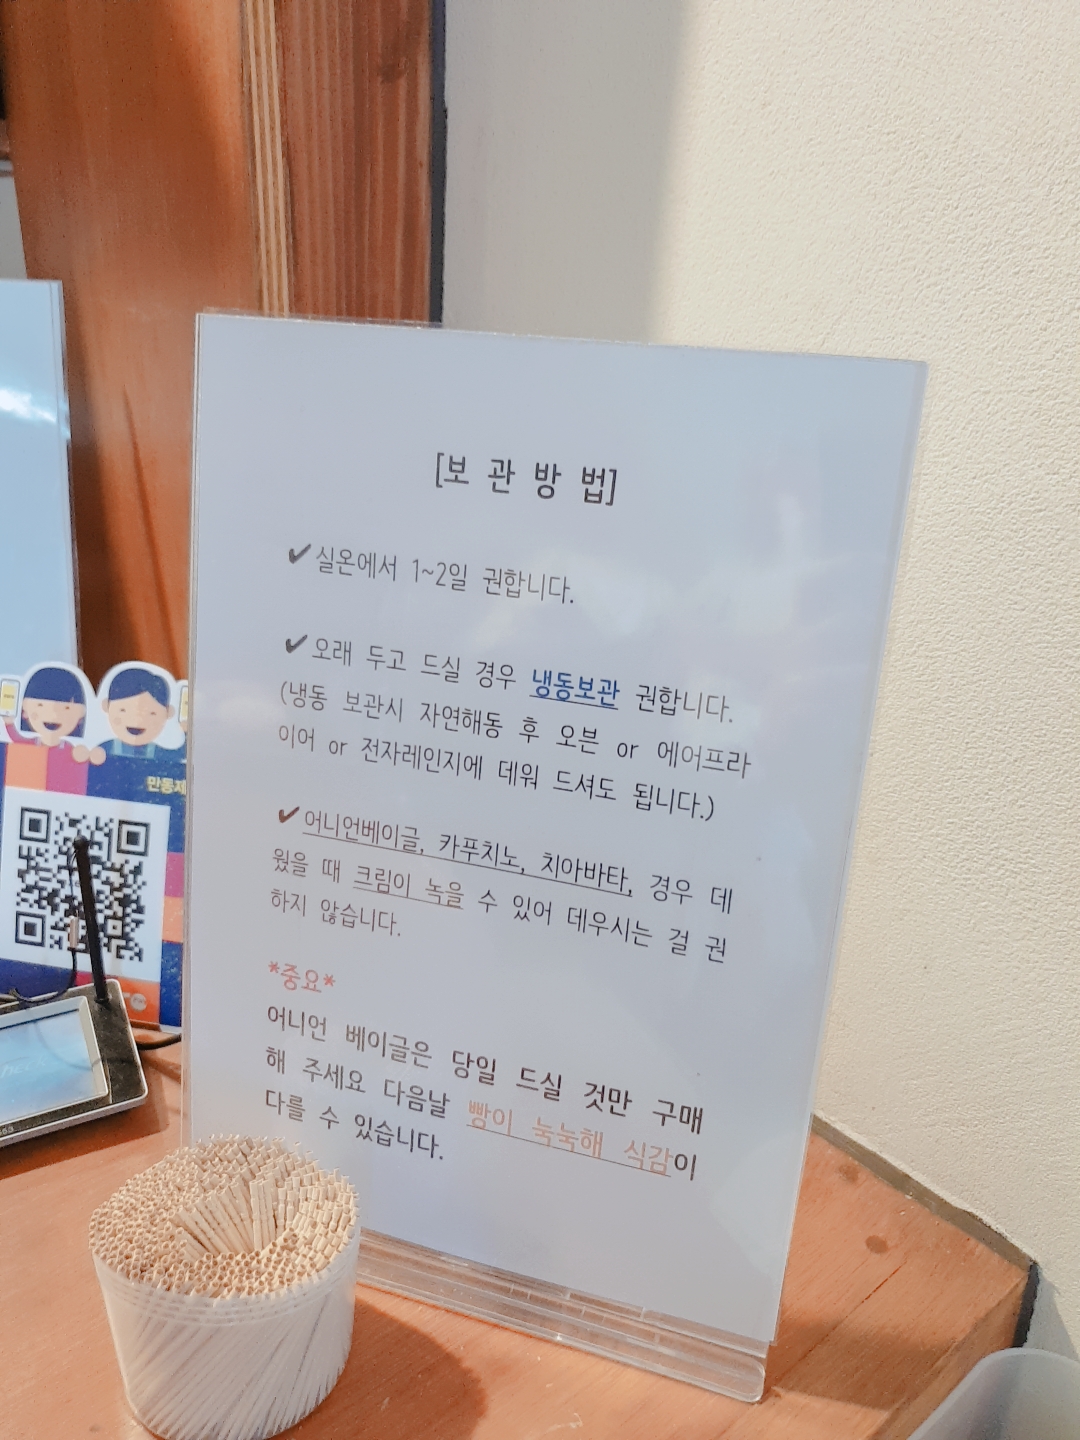 [보 관 방 법]
✔실온에서 1~2일 권합니다.
✔오래 두고 드실 경우 냉동보관 권합니다.
(냉동 보관시 자연해동 후 오븐 or 에어프라
이어 or 전자레인지에 데워 드셔도 됩니다.)
✔어니언베이글, 카푸치노, 치아바타, 경우 데
웠을 때 크림이 녹을 수 있어 데우시는 걸 권
하지 않습니다.
*중요*
어니언 베이글은 당일 드실 것만 구매
해 주세요 다음날 빵이 눅눅해 식감이
다를 수 있습니다.